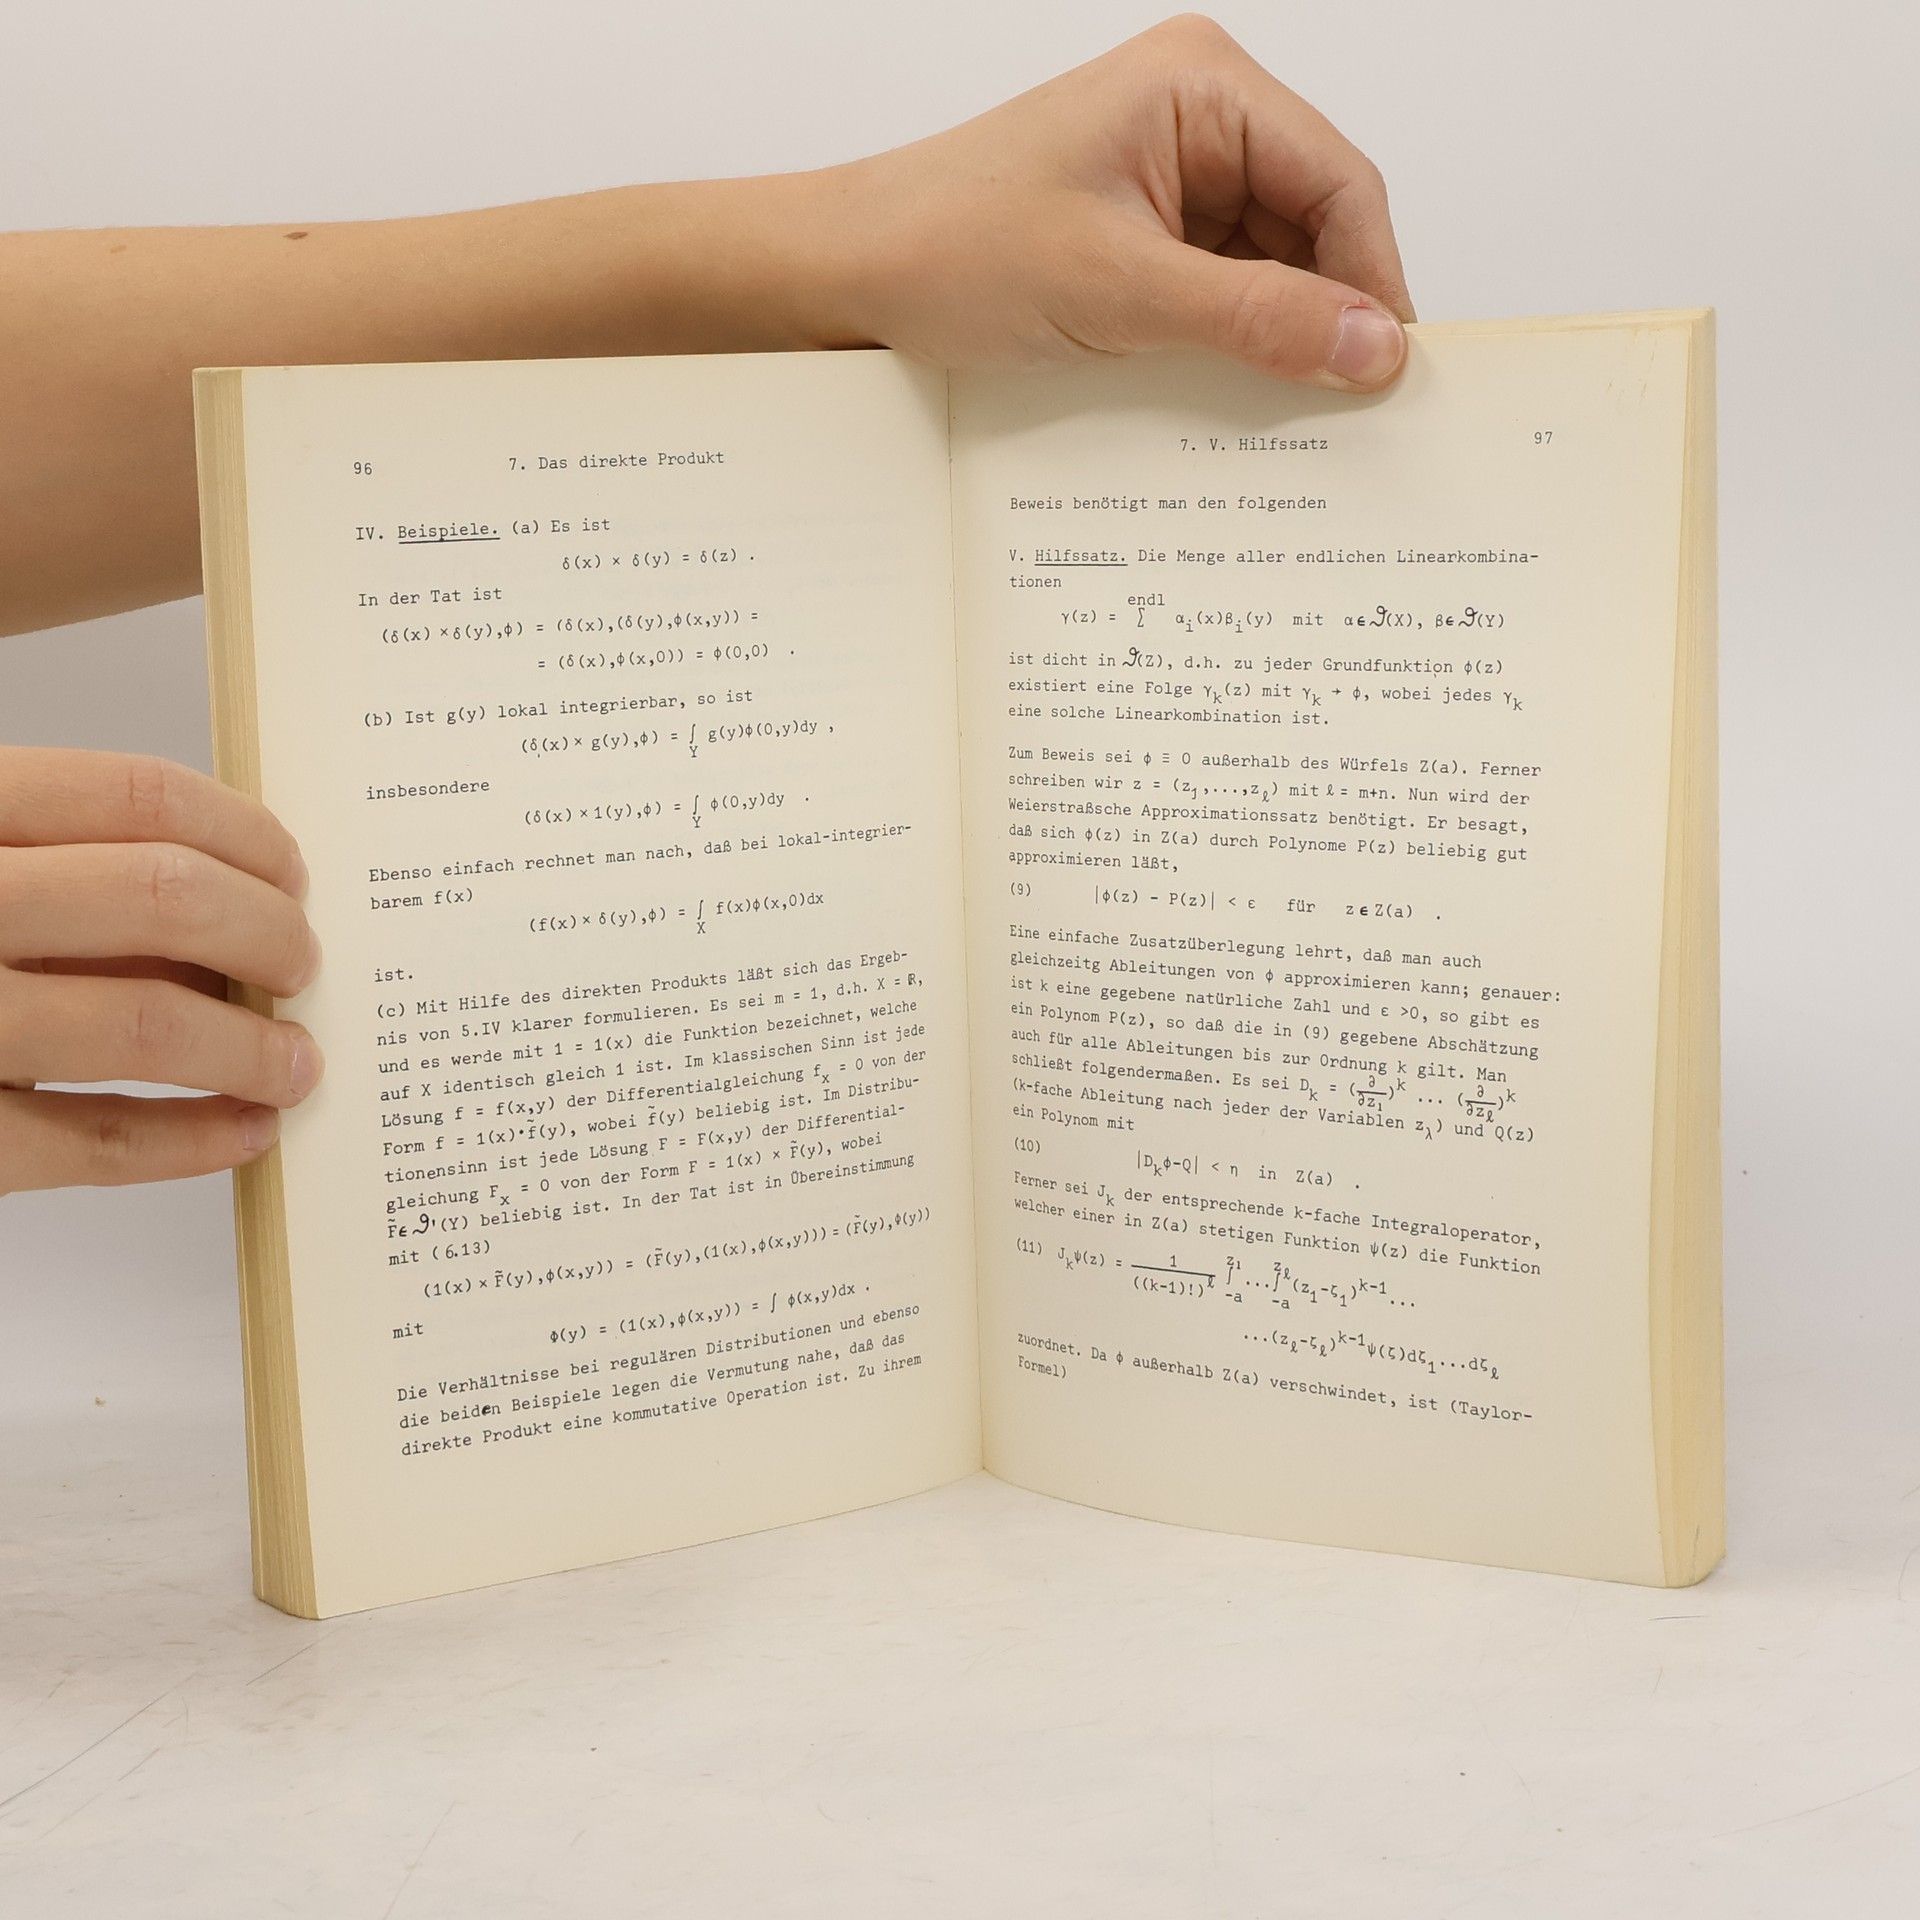 96 7. Das direkte Produkt
IV. Beispiele. (a) Es ist
δ(x) × δ(y) = δ(z) .
In der Tat ist
(δ(x) ×δ(y),ϕ) = (δ(x),(δ(y),ϕ(x,y)) =
= (δ(x),ϕ(x,0)) = ϕ(0,0) .
(b) Ist g(y) lokal integrierbar, so ist
(δ(x)× g(y),ϕ) = ∫_Y g(y)ϕ(0,y)dy ,
insbesondere
(δ(x) ×1(y),ϕ) = ∫_Y ϕ(0,y)dy .
Ebenso einfach rechnet man nach, daß bei lokal-integrier-
barem f(x)
(f(x)× δ(y),ϕ) = ∫_X f(x)ϕ(x,0)dx
ist.
(c) Mit Hilfe des direkten Produkts läßt sich das Ergeb-
nis von 5.IV klarer formulieren. Es sei m = 1, d.h. X = ℝ,
und es werde mit 1 = 1(x) die Funktion bezeichnet, welche
auf X identisch gleich 1 ist. Im klassischen Sinn ist jede
Lösung f = f(x,y) der Differentialgleichung f_x = 0 von der
Form f = 1(x)·f̃(y), wobei f̃(y) beliebig ist. Im Distribu-
tionensinn ist jede Lösung F = F(x,y) der Differential-
gleichung F_x = 0 von der Form F = 1(x) × F̃(y), wobei
F̃∈𝒟'(Y) beliebig ist. In der Tat ist in Übereinstimmung
mit (6.13)
(1(x) × F̃(y),ϕ(x,y)) = (F̃(y),(1(x),ϕ(x,y))) = (F̃(y),Φ(y))
mit
Φ(y) = (1(x),ϕ(x,y)) = ∫ ϕ(x,y)dx .
Die Verhältnisse bei regulären Distributionen und ebenso
die beiden Beispiele legen die Vermutung nahe, daß das
direkte Produkt eine kommutative Operation ist. Zu ihrem
7. V. Hilfssatz 97
Beweis benötigt man den folgenden
V. Hilfssatz. Die Menge aller endlichen Linearkombina-
tionen
γ(z) = ∑^endl α_i(x)β_i(y) mit α∈𝒟(X), β∈𝒟(Y)
ist dicht in 𝒟(Z), d.h. zu jeder Grundfunktion ϕ(z)
existiert eine Folge γ_k(z) mit γ_k → ϕ, wobei jedes γ_k
eine solche Linearkombination ist.
Zum Beweis sei ϕ ≡ 0 außerhalb des Würfels Z(a). Ferner
schreiben wir z = (z_1,...,z_ℓ) mit ℓ = m+n. Nun wird der
Weierstraßsche Approximationssatz benötigt. Er besagt,
daß sich ϕ(z) in Z(a) durch Polynome P(z) beliebig gut
approximieren läßt,
(9) |ϕ(z) - P(z)| < ε für z∈Z(a) .
Eine einfache Zusatzüberlegung lehrt, daß man auch
gleichzeitg Ableitungen von ϕ approximieren kann; genauer:
ist k eine gegebene natürliche Zahl und ε >0, so gibt es
ein Polynom P(z), so daß die in (9) gegebene Abschätzung
auch für alle Ableitungen bis zur Ordnung k gilt. Man
schließt folgendermaßen. Es sei D_k = (∂/∂z_1)^k ... (∂/∂z_ℓ)^k
(k-fache Ableitung nach jeder der Variablen z_λ) und Q(z)
ein Polynom mit
(10) |D_kϕ-Q| < η in Z(a) .
Ferner sei J_k der entsprechende k-fache Integraloperator,
welcher einer in Z(a) stetigen Funktion ψ(z) die Funktion
(11) J_kψ(z) = 1/((k-1)!)^ℓ ∫_{-a}^{z_1}...∫_{-a}^{z_ℓ}(z_1-ζ_1)^{k-1}...
...(z_ℓ-ζ_ℓ)^{k-1}ψ(ζ)dζ_1...dζ_ℓ
zuordnet. Da ϕ außerhalb Z(a) verschwindet, ist (Taylor-
Formel)